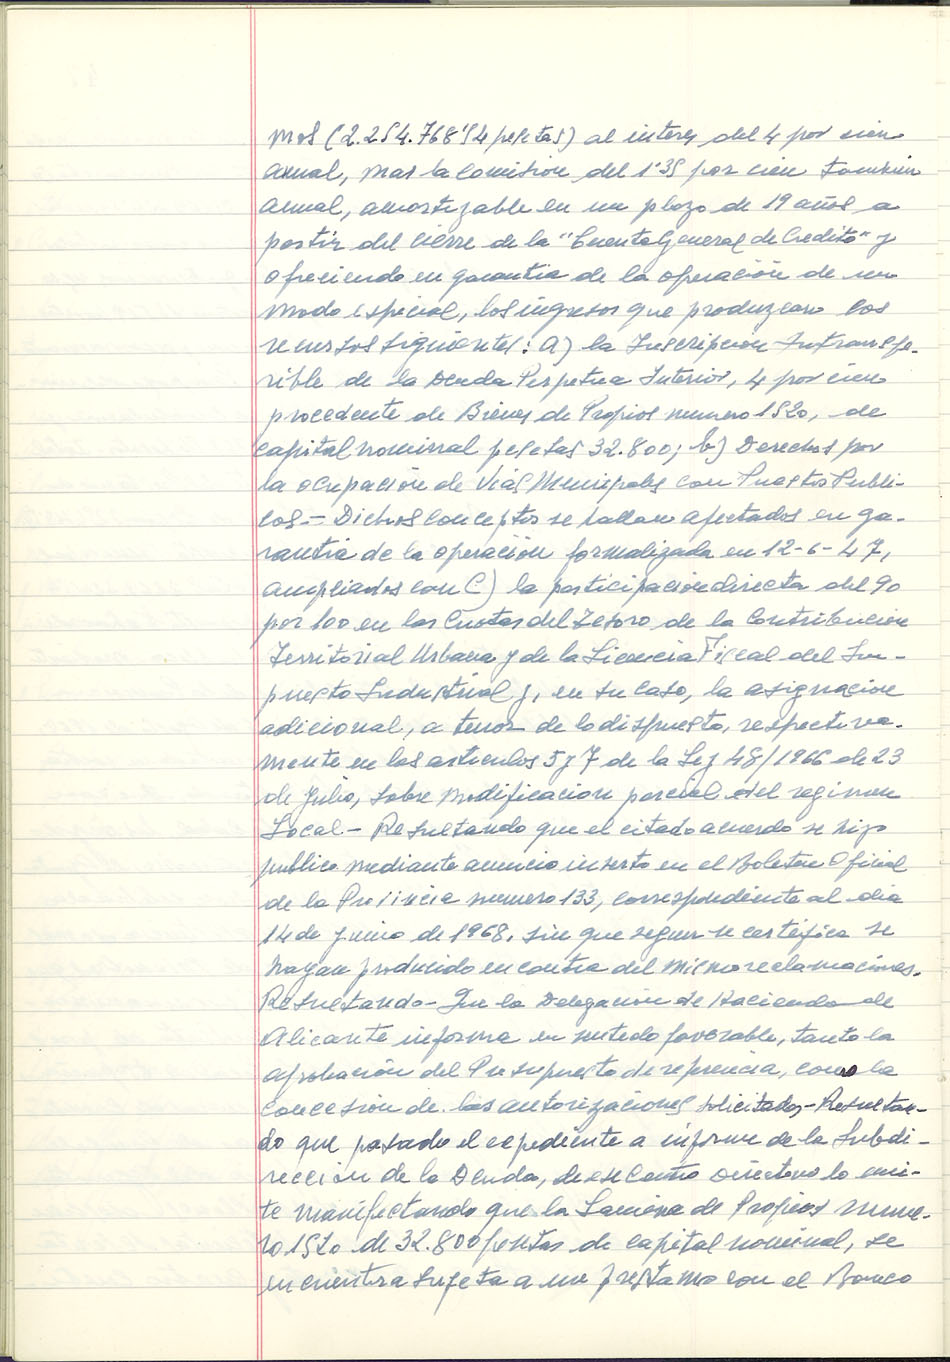 mos (2.254.768'54 pesetas) al interes del 4 por cien
anual, mas la comision del 1'35 por cien tambien
anual, amortizable en un plazo de 19 años a
partir del cierre de la "Cuenta General de Credito" y
ofreciendo en garantia de la operación de un
modo especial, los ingresos que produzcan los
recursos siguientes: A) la Inscripcion Intransfe-
rible de la Deuda Perpetua Interior, 4 por cien
procedente de Bienes de Propios numero 1520, de
capital nominal pesetas 32.800; b) Derechos por
la ocupación de Vias Municipales con Puestos Publi-
cos.- Dichos conceptos se hallan afectados en ga-
rantia de la operación formalizada en 12-6-47,
ampliados con C) la participación directa del 90
por 100 en las Cuotas del Tesoro de la Contribucion
Territorial Urbana y de la Licencia Fiscal del Im-
puesto Industrial y, en su caso, la asignacion
adicional, a tenor de lo dispuesto, respectiva-
mente en los articulos 5 y 7 de la Ley 48/1966 de 23
de Julio, sobre modificacion parcial del regimen
Local- Resultando que el citado acuerdo se hizo
publico mediante anuncio inserto en el Boletin Oficial
de la Provincia numero 133, correspondiente al dia
14 de junio de 1968, sin que segun se certifica se
hayan producido en contra del mismo reclamaciones.
Resultando- Que la Delegacion de Hacienda de
Alicante informa en sentido favorable, tanto la
aprobación del Presupuesto de referencia, como la
concesión de las autorizaciones solicitadas- Resultan-
do que pasado el expediente a informe de la Subdi-
rección de la Deuda, de ese Centro Directivo lo emi-
te manifestando que la Lamina de Propios nume-
ro 1520 de 32.800 pesetas de capital nominal, se
encuentra sujeta a un prestamo con el Banco